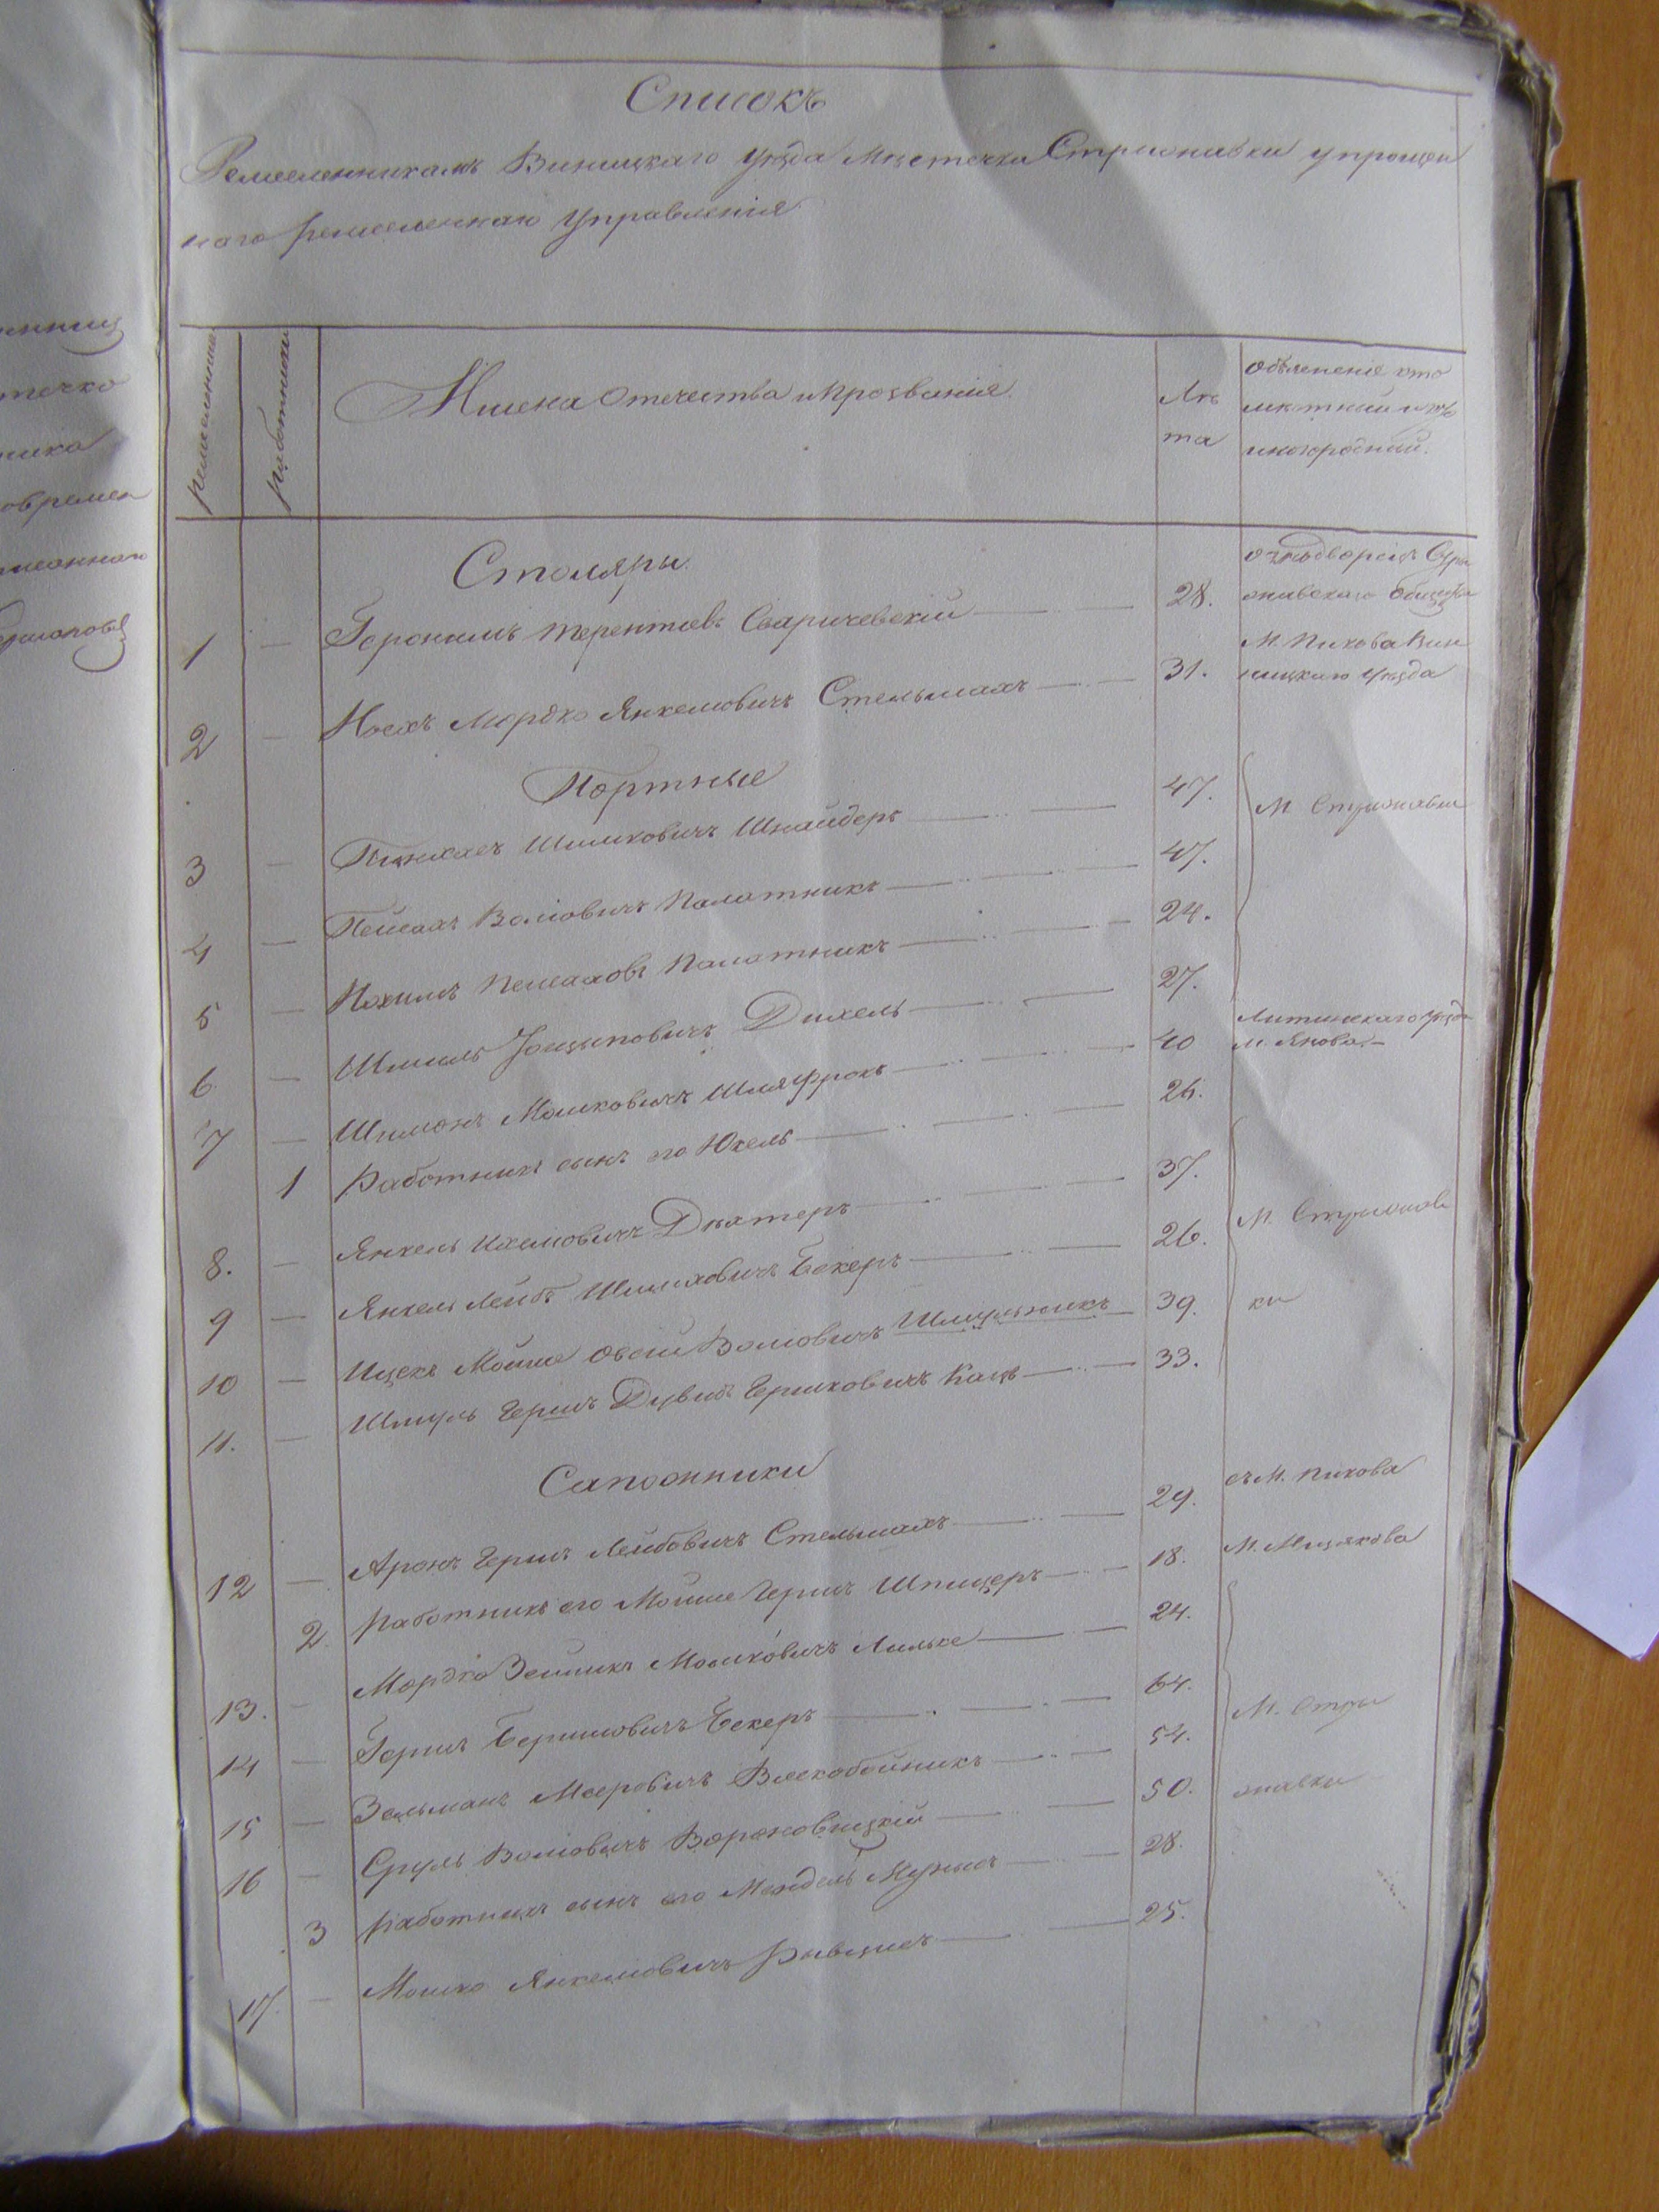 Списокъ
Ремесленникамъ Виницкаго уѣзда мѣстечка Стрижавки упрощен
наго ремесленнаго Управленія
ремесленники
работники
Имена Отечества и прозванія
Лѣ
та
объясненіе кто
мѣстный и кто
иногородный.
Столяры
1 — Геронимъ Терентіевъ Сваричевскій — 28. однодворецъ Стри
жавскаго общества
2 — Носехъ Мордко Янкелювичъ Стельмахъ — 31. М. Пикова Вин
ницкаго уѣзда
Портные
3 — Пинхасъ Шмиковичъ Шнайдеръ — 47. М. Стрижавки
4 — Пейсахъ Волювичъ Палатникъ — 47.
5 — Нахимъ Пейсаховъ Палатникъ — 24.
6 — Шмиль Іосиповичъ Дихель — 27.
7 — Шимонъ Мошковичъ Шляфрокъ — 40 Литинскаго уѣзда
м. Янова. —
1 Работникъ сынъ его Юкель — 26.
8. — Янкель Ихелювичъ Дихтеръ — 37. М. Стрижав
9 — Янкель Лейбъ Бекеръ — 26.
10 — Ицекъ Мойше Овсей Волювичъ Шмуклникъ — 39. ки
11. — Шмуль Гершъ Дувидъ Гершковичъ Кацъ — 33.
Сапожники
12 — Аронъ Гершъ Лейбовичъ Стельмахъ — 29. съ М. Пикова
2. работникъ его Мойше Гершъ Шпицеръ — 18. М. Мизякова
13. — Мордко Зейликъ Мошковичъ Лильке — 24.
14 — Гершъ Бершковичъ Бекеръ — 64. М. Стри
15 — Зельманъ Мееровичъ Воскобойникъ — 54.
16 — Сруль Волювичъ Вороновицкій — 50. жавки
3 работникъ сынъ его Мендель Мунисъ — 28.
17. — Мошко Янкелювичъ — 25.